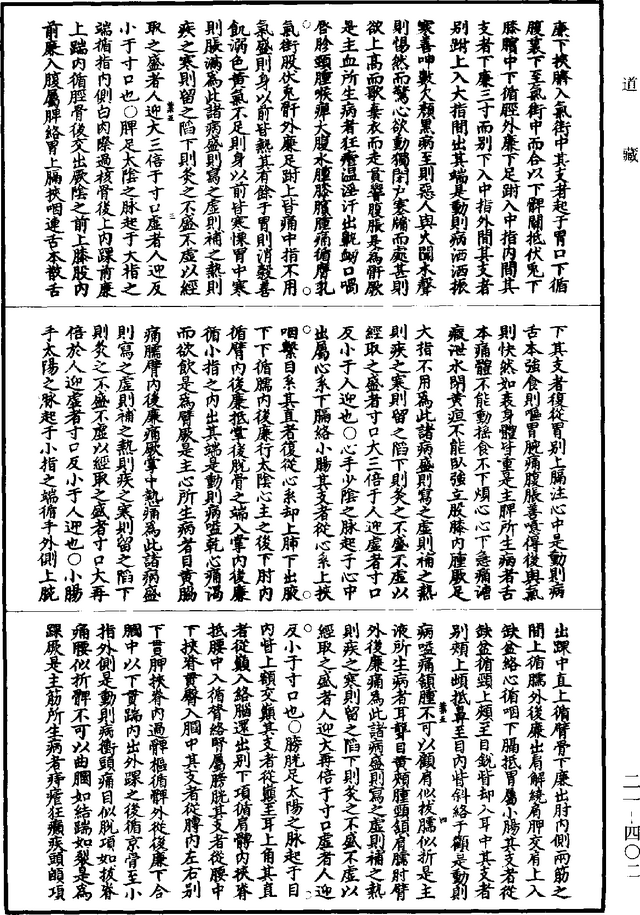 道藏
廉下挾臍入氣街中其支者起于胃口下循
腹裏下至氣街中而合以下髀關抵伏兔下
膝臏中下循脛外廉下足跗入中指內間其
支者下廉三寸而別下入中指外間其支者
別跗上入大指間出其端是動則病洒洒振
寒善呻數欠顏黑病至則惡人與火聞木聲
則惕然而驚心欲動獨閉戶塞牖而處甚則
欲上高而歌棄衣而走賁響腹脹是為骭厥
是主血所生病者狂瘧溫淫汗出鼽衂口喎
唇胗頸腫喉痹大腹水腫膝臏腫痛循膺乳
氣街股伏兔骭外廉足跗上皆痛中指不用
氣盛則身以前皆熱其有餘于胃則消穀善
飢溺色黃氣不足則身以前皆寒慄胃中寒
則脹滿為此諸病盛則寫之虛則補之熱則
疾之寒則留之陷下則灸之不盛不虛以經
取之盛者人迎大三倍于寸口虛者人迎反
小于寸口也○脾足太陰之脉起于大指之
端循指內側白肉際過核骨後上內踝前廉
上踹內循脛骨後交出厥陰之前上膝股內
前廉入腹屬脾絡胃上膈挾咽連舌本散舌
下其支者復從胃別上膈注心中是動則病
舌本強食則嘔胃脘痛腹脹善噫得後與氣
則快然如衰身體皆重是主脾所生病者舌
本痛體不能動搖食不下煩心心下急痛溏
瘕泄水閉黃疸不能臥強立股膝內腫厥足
大指不用為此諸病盛則寫之虛則補之熱
則疾之寒則留之陷下則灸之不盛不虛以
經取之盛者寸口大三倍于人迎虛者寸口
反小于人迎也○心手少陰之脉起于心中
出屬心系下膈絡小腸其支者從心系上挾
咽繫目系其直者復從心系却上肺下出腋
下下循臑內後廉行太陰心主之後下肘內
循臂內後廉抵掌後脫骨之端入掌內後廉
循小指之內出其端是動則病嗌乾心痛渴
而欲飲是為臂厥是主心所生病者目黃脇
痛臑臂內後廉痛厥掌中熱痛為此諸病盛
則寫之虛則補之熱則疾之寒則留之陷下
則灸之不盛不虛以經取之盛者寸口大再
倍於人迎虛者寸口反小于人迎也○小腸
手太陽之脉起于小指之端循手外側上腕
出踝中直上循臂骨下廉出肘內側兩筋之
間上循臑外後廉出肩解繞肩胛交肩上入
缺盆絡心循咽下膈抵胃屬小腸其支者從
缺盆循頸上頰至目銳眥却入耳中其支者
別頰上䪼抵鼻至目內眥斜絡于顴是動則
病嗌痛頷腫不可以顧肩似拔臑似折是主
液所生病者耳聾目黃頰腫頸頷肩臑肘臂
外後廉痛為此諸病盛則寫之虛則補之熱
則疾之寒則留之陷下則灸之不盛不虛以
經取之盛者人迎大再倍于寸口虛者人迎
反小于寸口也○膀胱足太陽之脉起于目
內眥上額交巔其支者從巔至耳上角其直
者從巔入絡腦還出別下項循肩髆內挾脊
抵腰中入循膂絡腎屬膀胱其支者從腰中
下挾脊貫臀入膕中其支者從髆內左右別
下貫胛挾脊內過髀樞循髀外從後廉下合
膕中以下貫踹內出外踝之後循京骨至小
指外側是動則病衝頭痛目似脫項如拔脊
痛腰似折髀不可以曲膕如結踹如裂是為
踝厥是主筋所生病者痔瘧狂癲疾頭䪿項
二一－四〇二